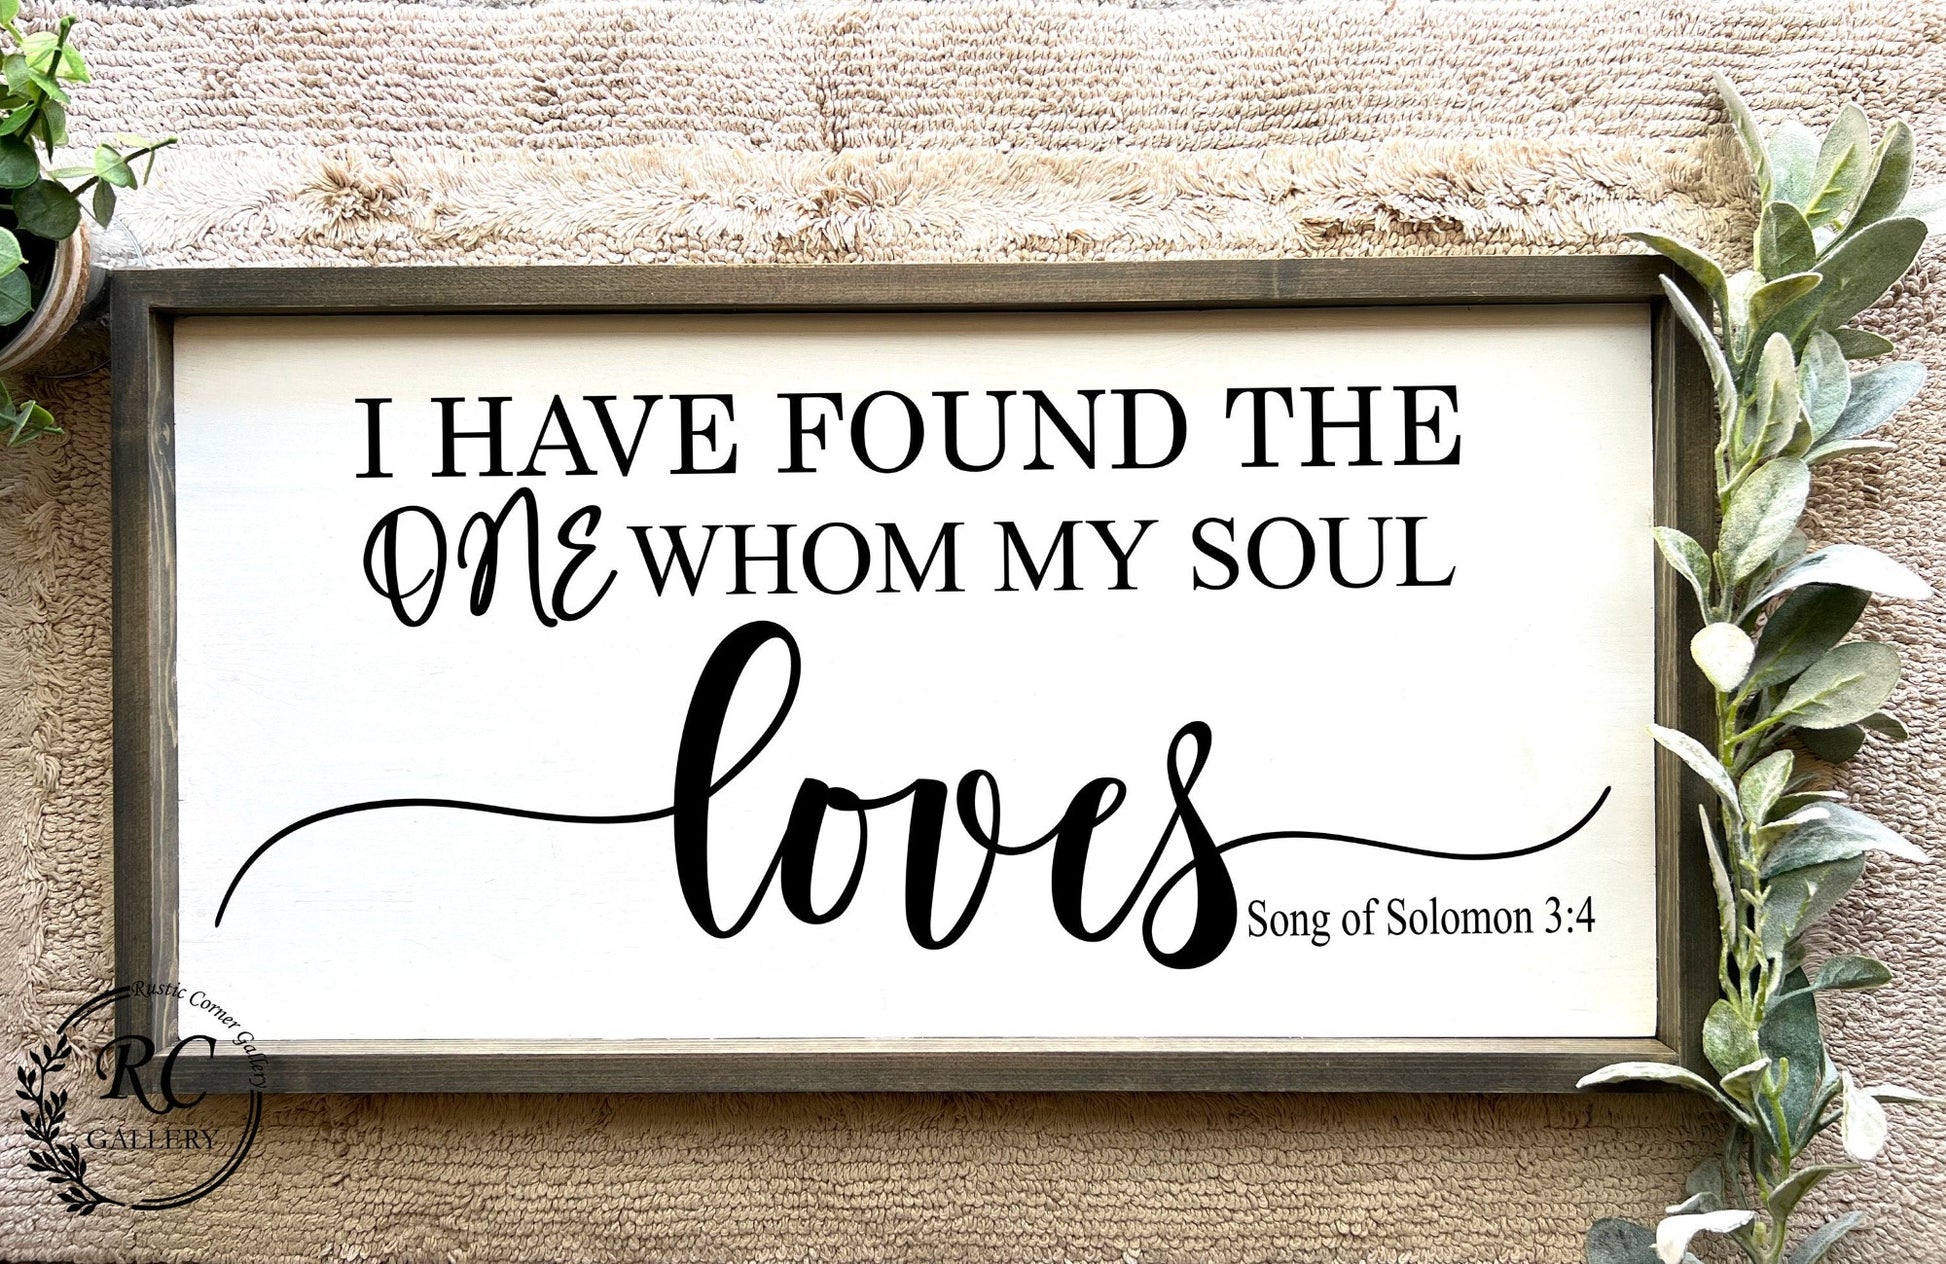 I HAVE FOUND THE
ONE WHOM MY SOUL
loves
Song of Solomon 3:4
Rustic Corner Gallery
RC
GALLERY